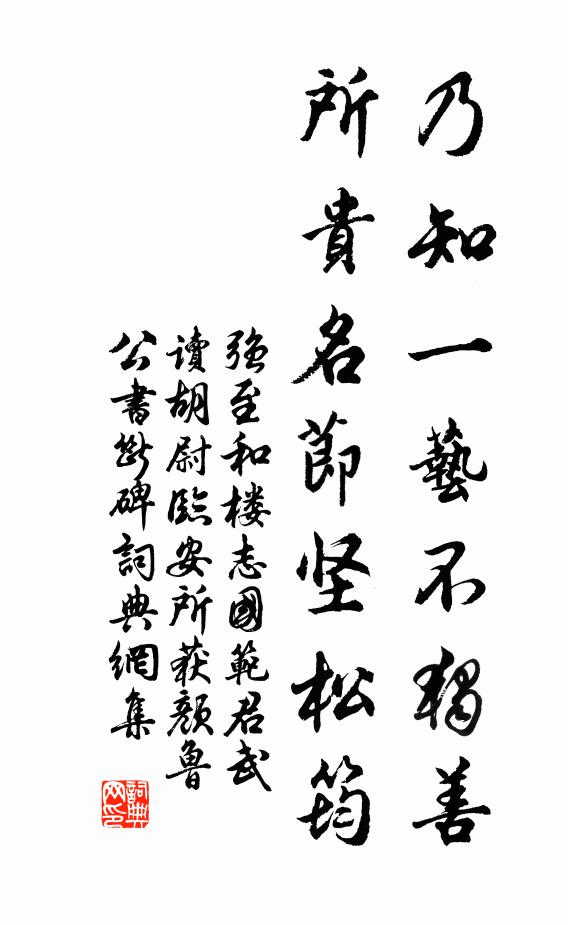 乃知一藝不獨善
所貴名節坚松筠
强至和楼志國範君武
讀胡尉臨安所获顏魯
公書断碑詞典網集
詞典网印